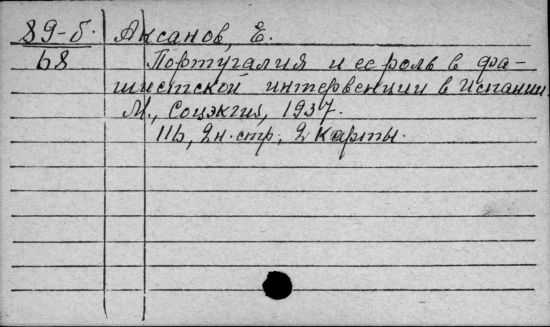 89-б. Аксанов, Е.
68 Португалия и ее роль в фа-
шистской интервенции в Испании.
М., Соцэкгиз, 1937.
116, 2 н. стр., 2 карты.